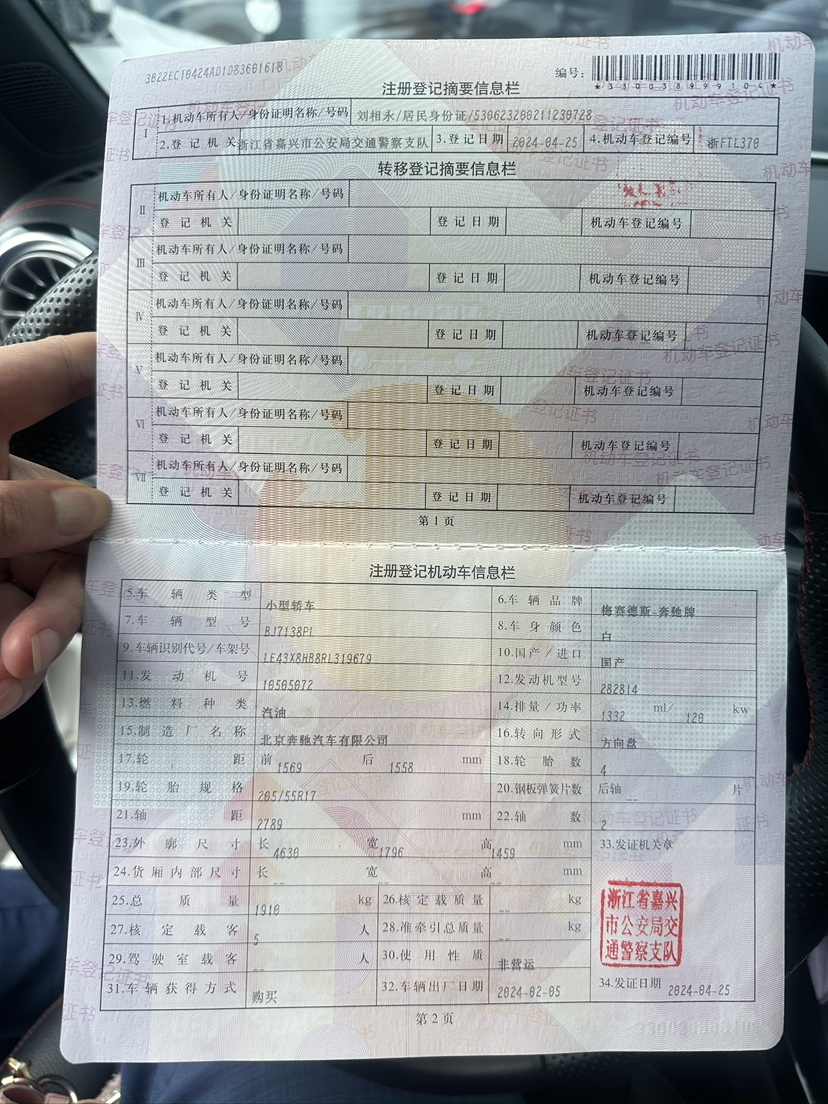 3B22EC10424AD1D83601618
编号：
*330038999104*
注册登记摘要信息栏
Ⅰ 1.机动车所有人/身份证明名称/号码 刘相永/居民身份证/530623200211230728
2.登记机关 浙江省嘉兴市公安局交通警察支队 3.登记日期 2024-04-25 4.机动车登记编号 浙FTL370
转移登记摘要信息栏
Ⅱ 机动车所有人/身份证明名称/号码
登记机关 登记日期 机动车登记编号
Ⅲ 机动车所有人/身份证明名称/号码
登记机关 登记日期 机动车登记编号
Ⅳ 机动车所有人/身份证明名称/号码
登记机关 登记日期 机动车登记编号
Ⅴ 机动车所有人/身份证明名称/号码
登记机关 登记日期 机动车登记编号
Ⅵ 机动车所有人/身份证明名称/号码
登记机关 登记日期 机动车登记编号
Ⅶ 机动车所有人/身份证明名称/号码
登记机关 登记日期 机动车登记编号
第1页
注册登记机动车信息栏
5.车辆类型 小型轿车 6.车辆品牌 梅赛德斯-奔驰牌
7.车辆型号 BJ7138PL 8.车身颜色 白
9.车辆识别代号/车架号 LE43X8HB8RL319679 10.国产/进口 国产
11.发动机号 10505072 12.发动机型号 282814
13.燃料种类 汽油 14.排量/功率 1332 ml/ 120 kw
15.制造厂名称 北京奔驰汽车有限公司 16.转向形式 方向盘
17.轮距 前 1569 后 1558 mm 18.轮胎数 4
19.轮胎规格 205/55R17 20.钢板弹簧片数 后轴 -- 片
21.轴距 2789 mm 22.轴数 2
23.外廓尺寸 长 4630 宽 1796 高 1459 mm 33.发证机关章
24.货厢内部尺寸 长 -- 宽 -- 高 -- mm
25.总质量 1910 kg 26.核定载质量 -- kg
27.核定载客 5 人 28.准牵引总质量 -- kg
29.驾驶室载客 -- 人 30.使用性质 非营运
31.车辆获得方式 购买 32.车辆出厂日期 2024-02-05 34.发证日期 2024-04-25
浙江省嘉兴
市公安局交
通警察支队
第2页